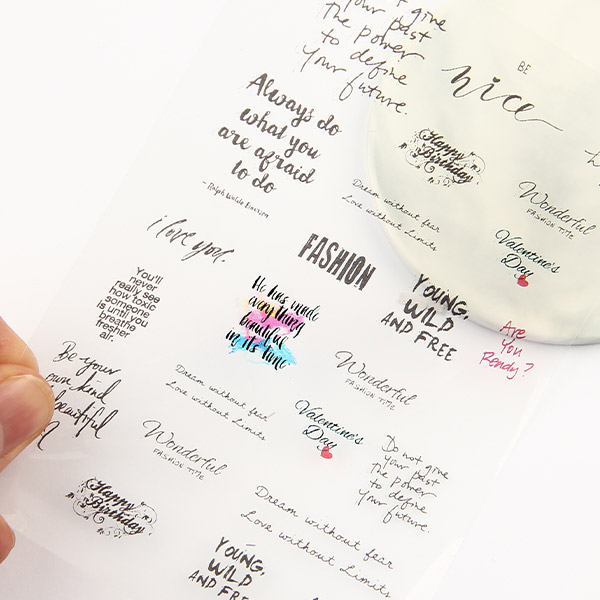 your past
the power
to define
your future.
BE
nice
Always do
what you
are afraid
to do
- Ralph Waldo Emerson
Happy
Birthday
Dream without fear
Love without limits
Wonderful
FASHION TIME
Valentine's
Day
i love you.
FASHION
You'll
never
really see
how toxic
someone
is until you
breathe
fresher
air.
He has made
everything
beautiful
in its time
YOUNG,
WILD
AND FREE
Are
You
Ready?
Be your
own kind
beautiful
Dream without fear
Love without limits
Wonderful
FASHION TIME
Valentine's
Day
Do not give
your past
the power
to define
your future.
Wonderful
FASHION TIME
Happy
Birthday
Dream without fear
Love without limits
YOUNG,
WILD
AND FREE